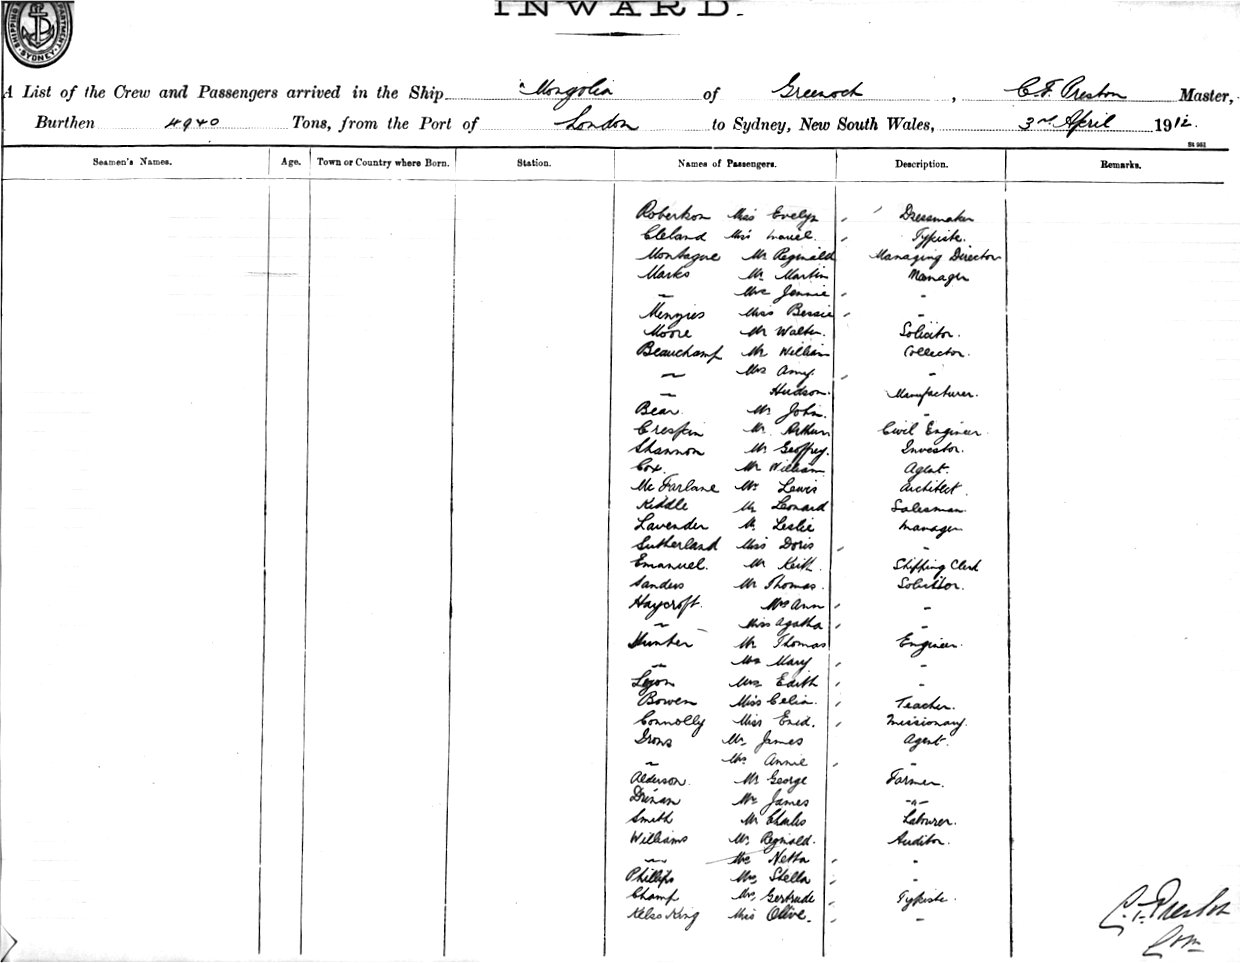 INWARD.
SHIPPING DEPARTMENT, SYDNEY
A List of the Crew and Passengers arrived in the Ship "Mongolia of Greenock, C. F. Preston Master,
Burthen 4940 Tons, from the Port of London to Sydney, New South Wales, 3rd April 1912.
Seamen's Names. Age. Town or Country where Born. Station. Names of Passengers. Description. Remarks.
Robertson Miss Evelyn , Dressmaker
Cleland Miss , Typiste.
Montague Mr Reginald Managing Director
Marks Mr Martin Manager
" Mrs Jennie , "
Menzies Miss Bessie , "
Moore Mr Walter. Solicitor.
Beauchamp Mr William Collector.
" Mrs Amy. , "
" Hudson. Manufacturer.
Bear Mr John. "
Crespin Mr Arthur Civil Engineer.
Shannon Mr Geoffrey. Investor.
Cox. Mr William Agent.
McFarlane Mr Lewis Architect.
Kiddle Mr Leonard Salesman
Lavender Mr Leslie Manager
Sutherland Miss Doris , "
Emanuel. Mr Keith. Shipping Clerk
Sanders Mr Thomas. Solicitor.
Haycroft. Mrs Ann , "
" Miss Agatha , "
Hunter Mr Thomas Engineer.
" Mrs Mary , "
Lyon Mrs Edith , "
Bowen Miss Celia. , Teacher.
Connolly Miss Enid. , Missionary.
Mr James Agent.
" Mrs Annie , "
Alderson. Mr George Farmer.
Drinan Mr James "
Smith Mr Charles Labourer.
Williams Mr Reginald. Auditor.
" Mrs Netta , "
Phillips Mrs Stella , "
Champ Mrs Gertrude , Typiste.
Kelso King Miss Olive. , "
C. F. Preston
Com